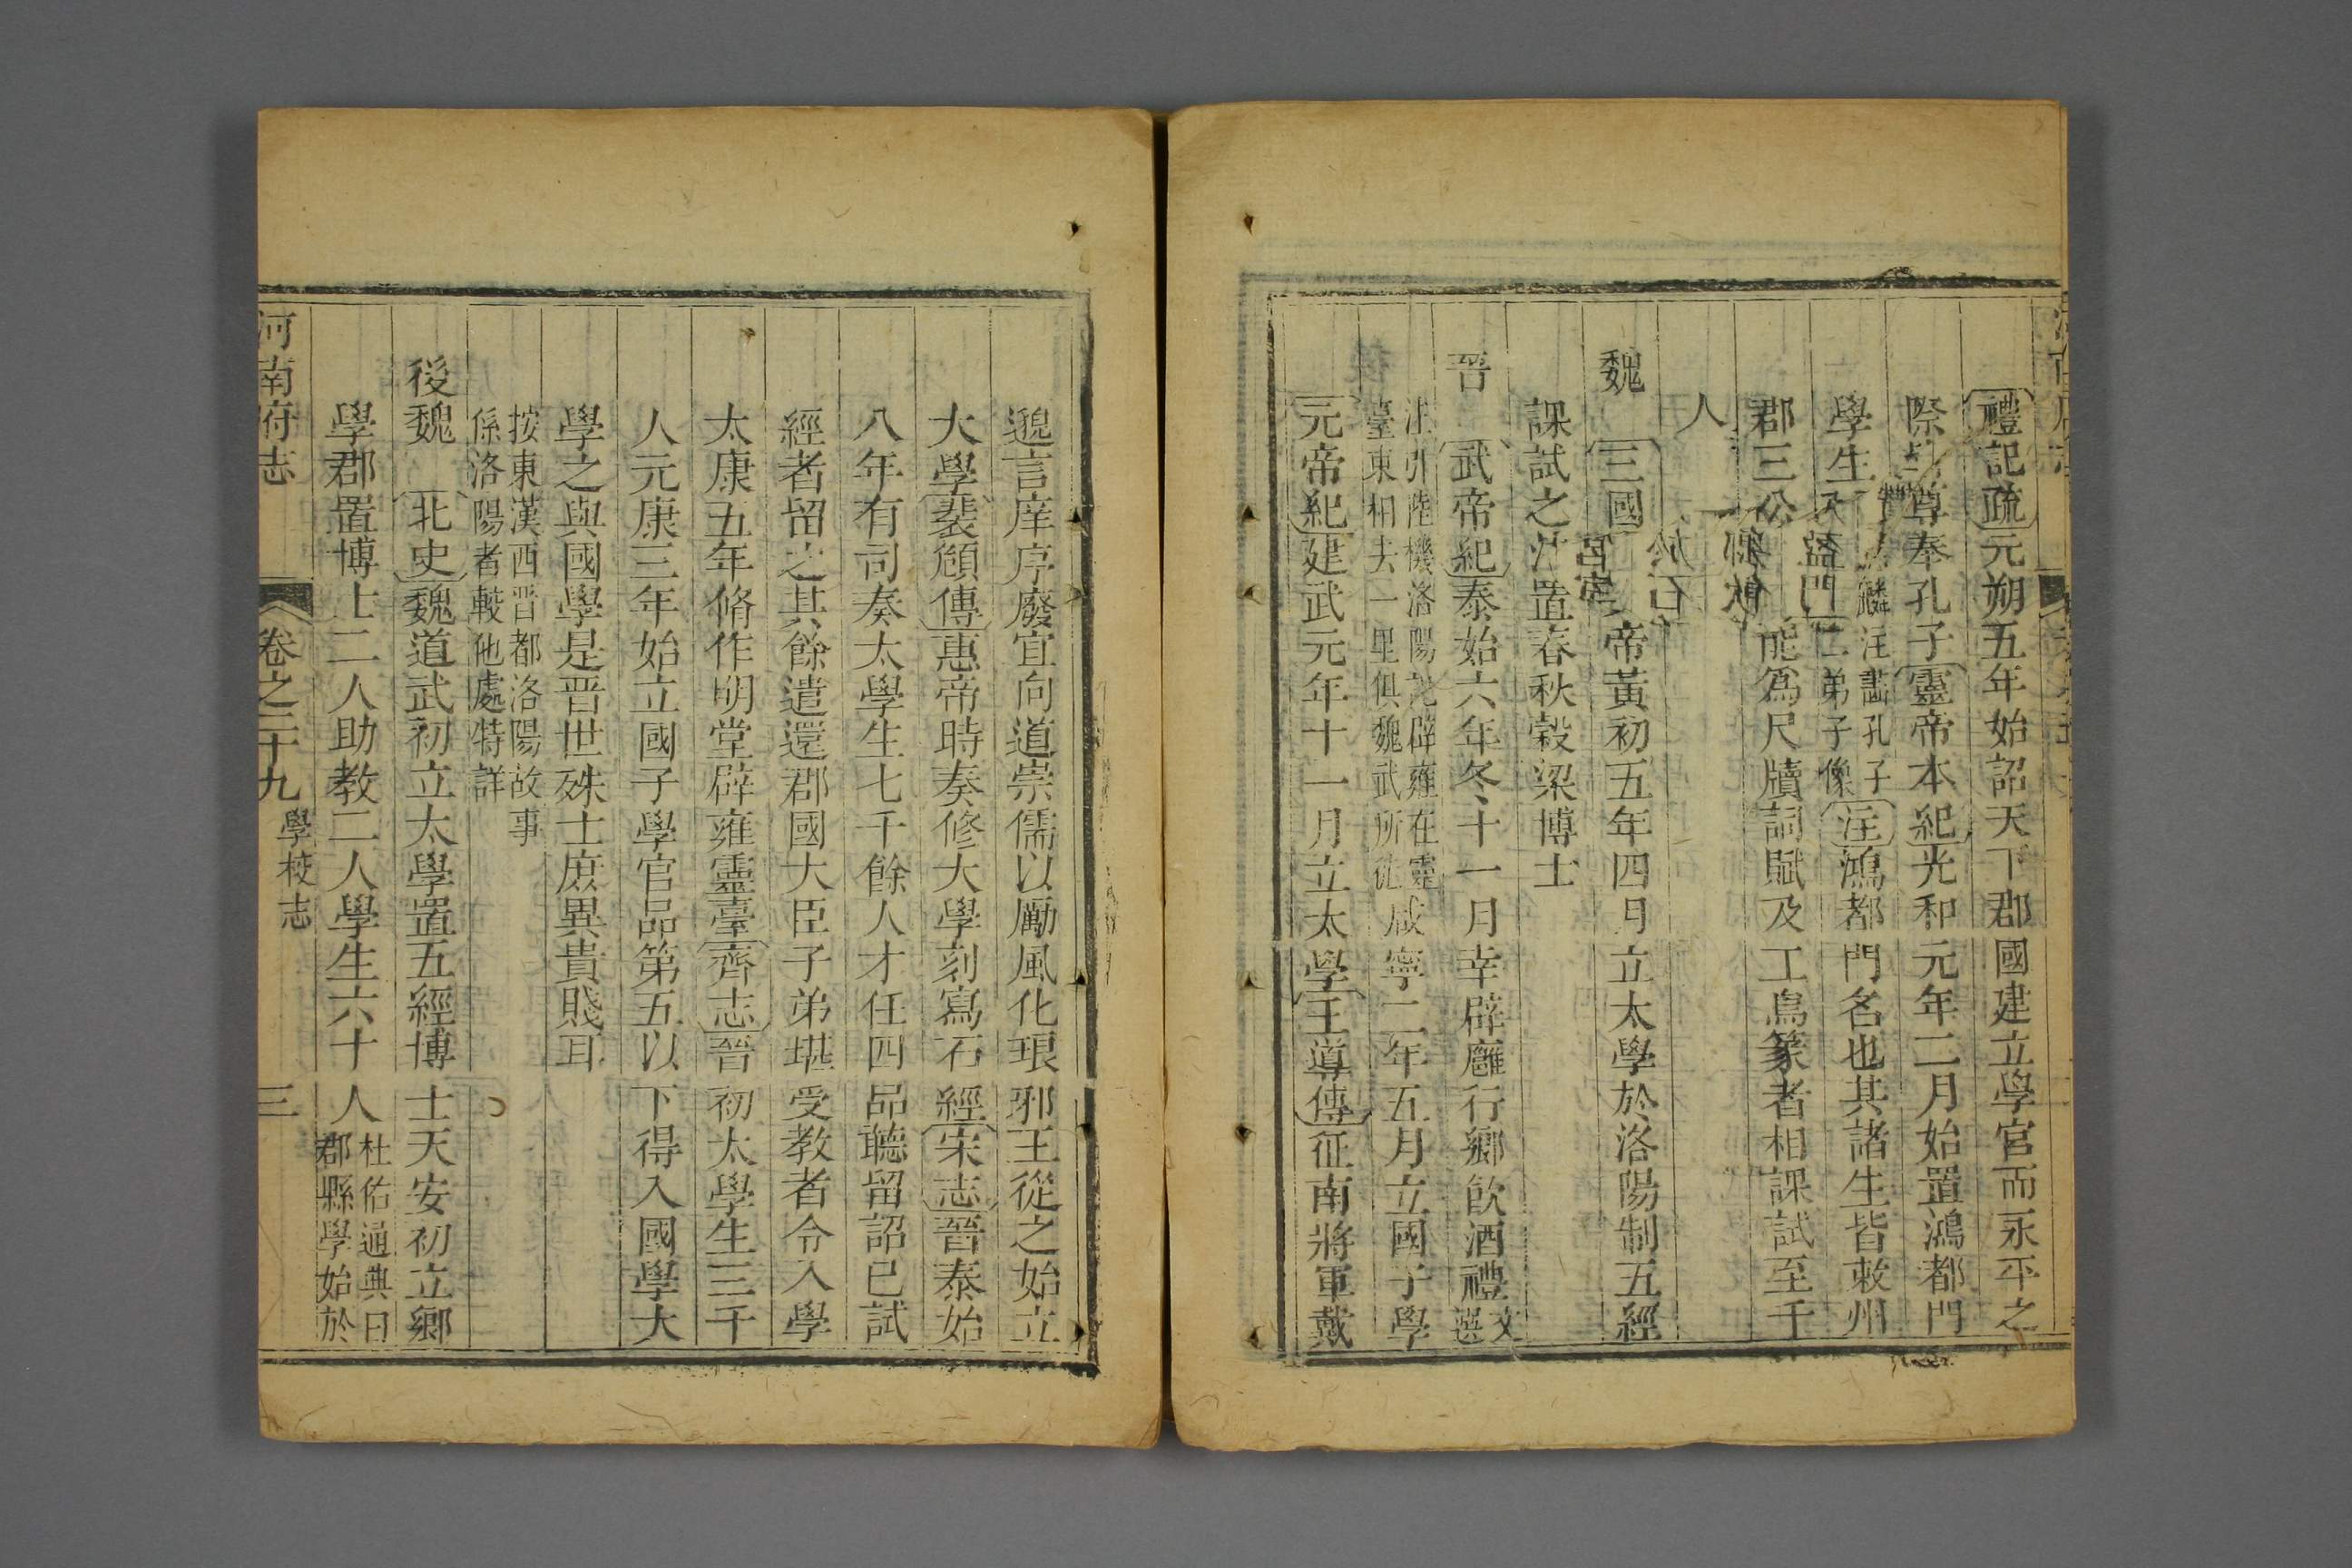 禮記疏元朔五年始詔天下郡國建立學官而永平之
際尊奉孔子靈帝本紀光和元年二月始置鴻都門
學生及麟注畫孔子二弟子像注鴻都門名也其諸生皆敕州
郡三公能爲尺牘詞賦及工鳥篆者相課試至千
人
魏 三國帝黃初五年四月立太學於洛陽制五經
課試之法置春秋穀梁博士
晉 武帝紀泰始六年冬十一月幸辟廱行鄉飮酒禮文選
注引陸機洛陽記辟雍在靈
臺東相去一里俱魏武所徙咸寧二年五月立國子學
元帝紀建武元年十一月立太學王導傳征南將軍戴
邈言庠序廢宜向道崇儒以勵風化琅邪王從之始立
大學裴頠傳惠帝時奏修大學刻寫石經宋志晉泰始
八年有司奏太學生七千餘人才任四品聽留詔已試
經者留之其餘遣還郡國大臣子弟堪受教者令入學
太康五年脩作明堂辟雍靈臺齊志晉初太學生三千
人元康三年始立國子學官品第五以下得入國學大
學之與國學是晉世殊士庶異貴賤耳
按東漢西晉都洛陽故事
係洛陽者較他處特詳
後魏 北史魏道武初立太學置五經博士天安初立鄉
學郡置博士二人助教二人學生六十人杜佑通典曰
郡縣學始於
河南府志 卷之二十九 學校志 三